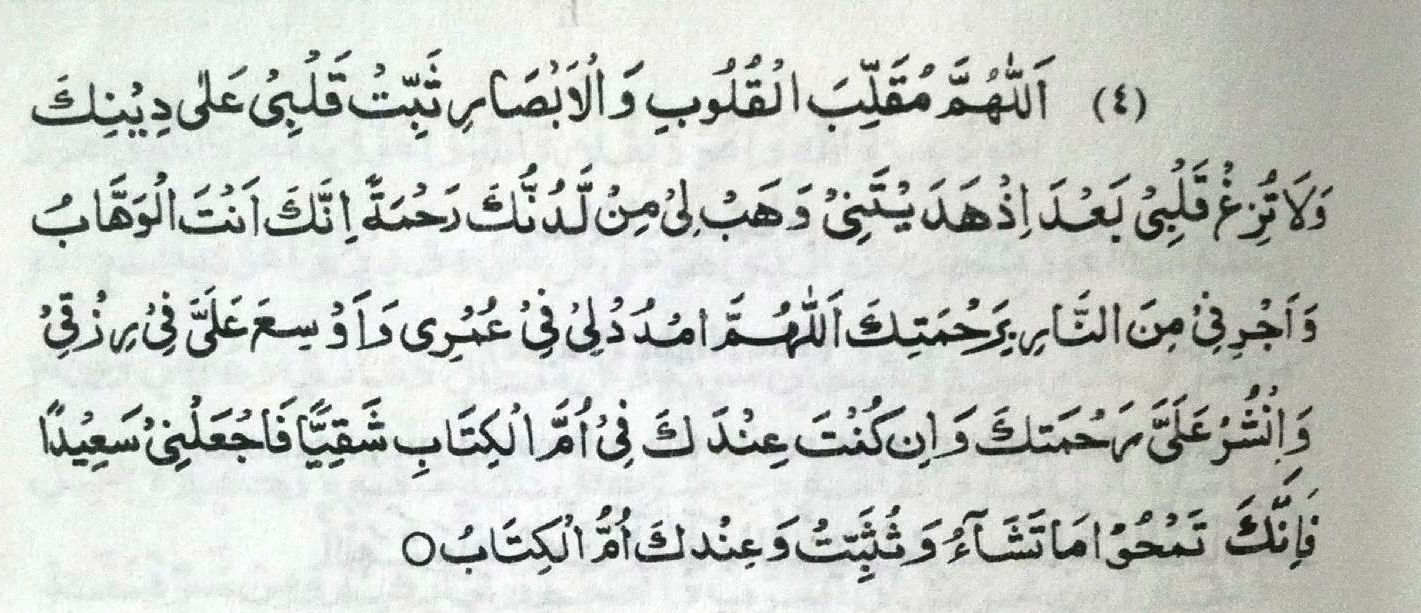 (٤) اَللّٰهُمَّ مُقَلِّبَ الْقُلُوبِ وَالْاَبْصَارِ ثَبِّتْ قَلْبِىْ عَلٰى دِيْنِكَ
وَلَا تُزِغْ قَلْبِىْ بَعْدَ اِذْ هَدَيْتَنِىْ وَهَبْ لِىْ مِنْ لَّدُنْكَ رَحْمَةً اِنَّكَ اَنْتَ الْوَهَّابُ
وَاَجْرِنِىْ مِنَ النَّارِ بِرَحْمَتِكَ اَللّٰهُمَّ امْدُدْ لِىْ فِىْ عُمْرِى وَاَوْسِعْ عَلَىَّ فِىْ رِزْقِىْ
وَانْشُرْ عَلَىَّ رَحْمَتَكَ وَاِنْ كُنْتَ عِنْدَكَ فِىْ اُمِّ الْكِتَابِ شَقِيًّا فَاجْعَلْنِىْ سَعِيْدًا
فَاِنَّكَ تَمْحُوْا مَا تَشَآءُ وَتُثَبِّتُ وَعِنْدَكَ اُمُّ الْكِتَابُ ○